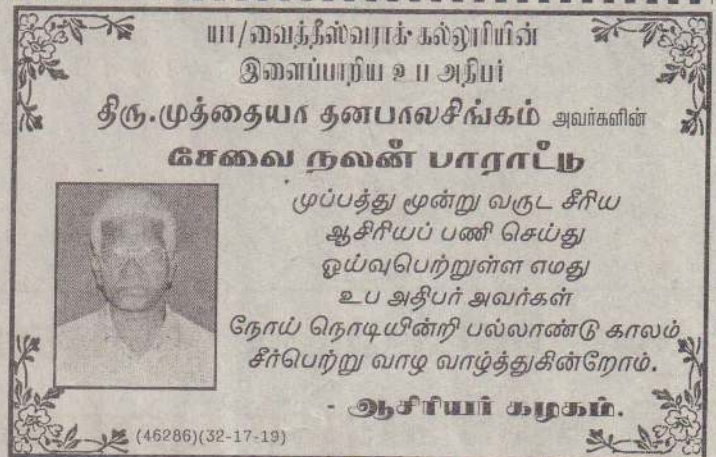 யா/வைத்தீஸ்வராக் கல்லூரியின்
இளைப்பாறிய உப அதிபர்
திரு.முத்தையா தனபாலசிங்கம் அவர்களின்
சேவை நலன் பாராட்டு
முப்பத்து மூன்று வருட சீரிய
ஆசிரியப் பணி செய்து
ஓய்வுபெற்றுள்ள எமது
உப அதிபர் அவர்கள்
நோய் நொடியின்றி பல்லாண்டு காலம்
சீர்பெற்று வாழ வாழ்த்துகின்றோம்.
- ஆசிரியர் கழகம்.
(46286)(32-17-19)